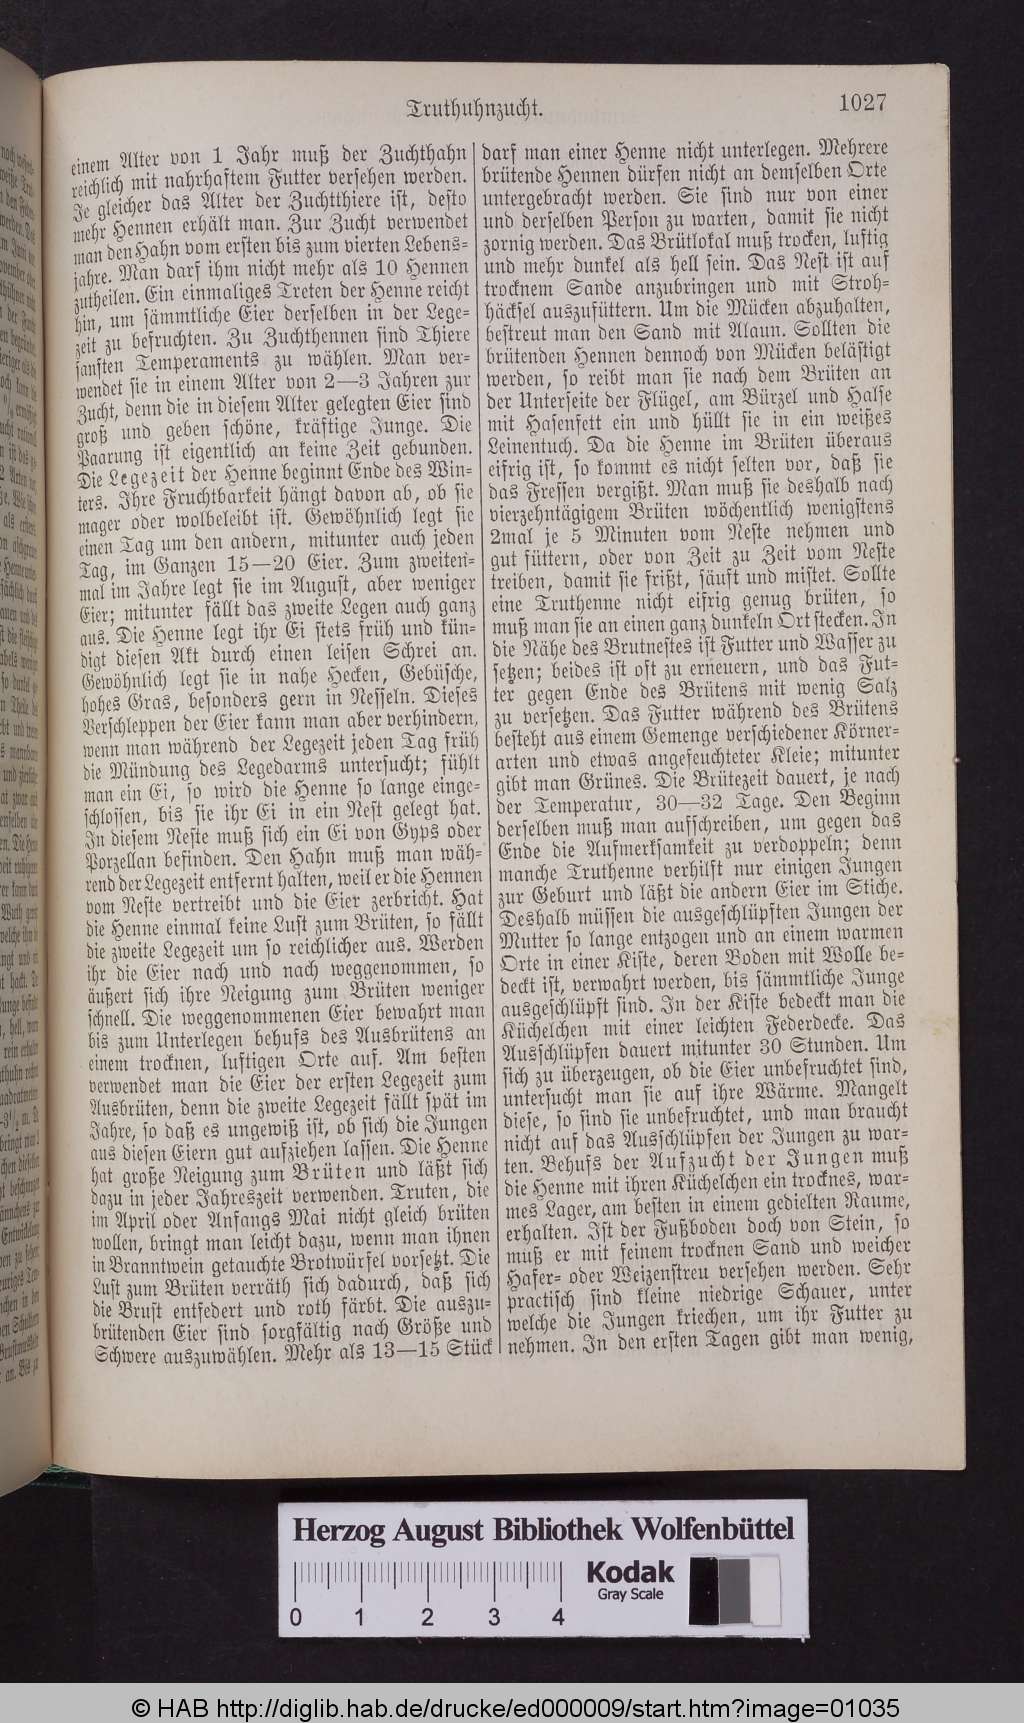 Truthuhnzucht.
1027
einem Alter von 1 Jahr muß der Zuchthahn
reichlich mit nahrhaftem Futter versehen werden.
Je gleicher das Alter der Zuchtthiere ist, desto
mehr Hennen erhält man. Zur Zucht verwendet
man den Hahn vom ersten bis zum vierten Lebens-
jahre. Man darf ihm nicht mehr als 10 Hennen
zutheilen. Ein einmaliges Treten der Henne reicht
hin, um sämmtliche Eier derselben in der Lege-
zeit zu befruchten. Zu Zuchthennen sind Thiere
sanften Temperaments zu wählen. Man ver-
wendet sie in einem Alter von 2—3 Jahren zur
Zucht, denn die in diesem Alter gelegten Eier sind
groß und geben schöne, kräftige Junge. Die
Paarung ist eigentlich an keine Zeit gebunden.
Die Legezeit der Henne beginnt Ende des Win-
ters. Ihre Fruchtbarkeit hängt davon ab, ob sie
mager oder wolbeleibt ist. Gewöhnlich legt sie
einen Tag um den andern, mitunter auch jeden
Tag, im Ganzen 15—20 Eier. Zum zweiten-
mal im Jahre legt sie im August, aber weniger
Eier; mitunter fällt das zweite Legen auch ganz
aus. Die Henne legt ihr Ei stets früh und kün-
digt diesen Akt durch einen leisen Schrei an.
Gewöhnlich legt sie in nahe Hecken, Gebüsche,
hohes Gras, besonders gern in Nesseln. Dieses
Verschleppen der Eier kann man aber verhindern,
wenn man während der Legezeit jeden Tag früh
die Mündung des Legedarms untersucht; fühlt
man ein Ei, so wird die Henne so lange einge-
schlossen, bis sie ihr Ei in ein Nest gelegt hat.
In diesem Neste muß sich ein Ei von Gyps oder
Porzellan befinden. Den Hahn muß man wäh-
rend der Legezeit entfernt halten, weil er die Hennen
vom Neste vertreibt und die Eier zerbricht. Hat
die Henne einmal keine Lust zum Brüten, so fällt
die zweite Legezeit um so reichlicher aus. Werden
ihr die Eier nach und nach weggenommen, so
äußert sich ihre Neigung zum Brüten weniger
schnell. Die weggenommenen Eier bewahrt man
bis zum Unterlegen behufs des Ausbrütens an
einem trocknen, luftigen Orte auf. Am besten
verwendet man die Eier der ersten Legezeit zum
Ausbrüten, denn die zweite Legezeit fällt spät im
Jahre, so daß es ungewiß ist, ob sich die Jungen
aus diesen Eiern gut aufziehen lassen. Die Henne
hat große Neigung zum Brüten und läßt sich
dazu in jeder Jahreszeit verwenden. Truten, die
im April oder Anfangs Mai nicht gleich brüten
wollen, bringt man leicht dazu, wenn man ihnen
in Branntwein getauchte Brotwürfel vorsetzt. Die
Lust zum Brüten verräth sich dadurch, daß sich
die Brust entfedert und roth färbt. Die auszu-
brütenden Eier sind sorgfältig nach Größe und
Schwere auszuwählen. Mehr als 13—15 Stück
darf man einer Henne nicht unterlegen. Mehrere
brütende Hennen dürfen nicht an demselben Orte
untergebracht werden. Sie sind nur von einer
und derselben Person zu warten, damit sie nicht
zornig werden. Das Brütlokal muß trocken, luftig
und mehr dunkel als hell sein. Das Nest ist auf
trocknem Sande anzubringen und mit Stroh-
häcksel auszufüttern. Um die Mücken abzuhalten,
bestreut man den Sand mit Alaun. Sollten die
brütenden Hennen dennoch von Mücken belästigt
werden, so reibt man sie nach dem Brüten an
der Unterseite der Flügel, am Bürzel und Halse
mit Hasenfett ein und hüllt sie in ein weißes
Leinentuch. Da die Henne im Brüten überaus
eifrig ist, so kommt es nicht selten vor, daß sie
das Fressen vergißt. Man muß sie deshalb nach
vierzehntägigem Brüten wöchentlich wenigstens
2mal je 5 Minuten vom Neste nehmen und
gut füttern, oder von Zeit zu Zeit vom Neste
treiben, damit sie frißt, säuft und mistet. Sollte
eine Truthenne nicht eifrig genug brüten, so
muß man sie an einen ganz dunkeln Ort stecken. In
die Nähe des Brutnestes ist Futter und Wasser zu
setzen; beides ist oft zu erneuern, und das Fut-
ter gegen Ende des Brütens mit wenig Salz
zu versetzen. Das Futter während des Brütens
besteht aus einem Gemenge verschiedener Körner-
arten und etwas angefeuchteter Kleie; mitunter
gibt man Grünes. Die Brütezeit dauert, je nach
der Temperatur, 30—32 Tage. Den Beginn
derselben muß man aufschreiben, um gegen das
Ende die Aufmerksamkeit zu verdoppeln; denn
manche Truthenne verhilft nur einigen Jungen
zur Geburt und läßt die andern Eier im Stiche.
Deshalb müssen die ausgeschlüpften Jungen der
Mutter so lange entzogen und an einem warmen
Orte in einer Kiste, deren Boden mit Wolle be-
deckt ist, verwahrt werden, bis sämmtliche Junge
ausgeschlüpft sind. In der Kiste bedeckt man die
Küchelchen mit einer leichten Federdecke. Das
Ausschlüpfen dauert mitunter 30 Stunden. Um
sich zu überzeugen, ob die Eier unbefruchtet sind,
untersucht man sie auf ihre Wärme. Mangelt
diese, so sind sie unbefruchtet, und man braucht
nicht auf das Ausschlüpfen der Jungen zu war-
ten. Behufs der Aufzucht der Jungen muß
die Henne mit ihren Küchelchen ein trocknes, war-
mes Lager, am besten in einem gedielten Raume,
erhalten. Ist der Fußboden doch von Stein, so
muß er mit feinem trocknen Sand und weicher
Hafer- oder Weizenstreu versehen werden. Sehr
practisch sind kleine niedrige Schauer, unter
welche die Jungen kriechen, um ihr Futter zu
nehmen. In den ersten Tagen gibt man wenig,
Herzog August Bibliothek Wolfenbüttel
Kodak
Gray Scale
0 1 2 3 4
© HAB http://diglib.hab.de/drucke/ed000009/start.htm?image=01035